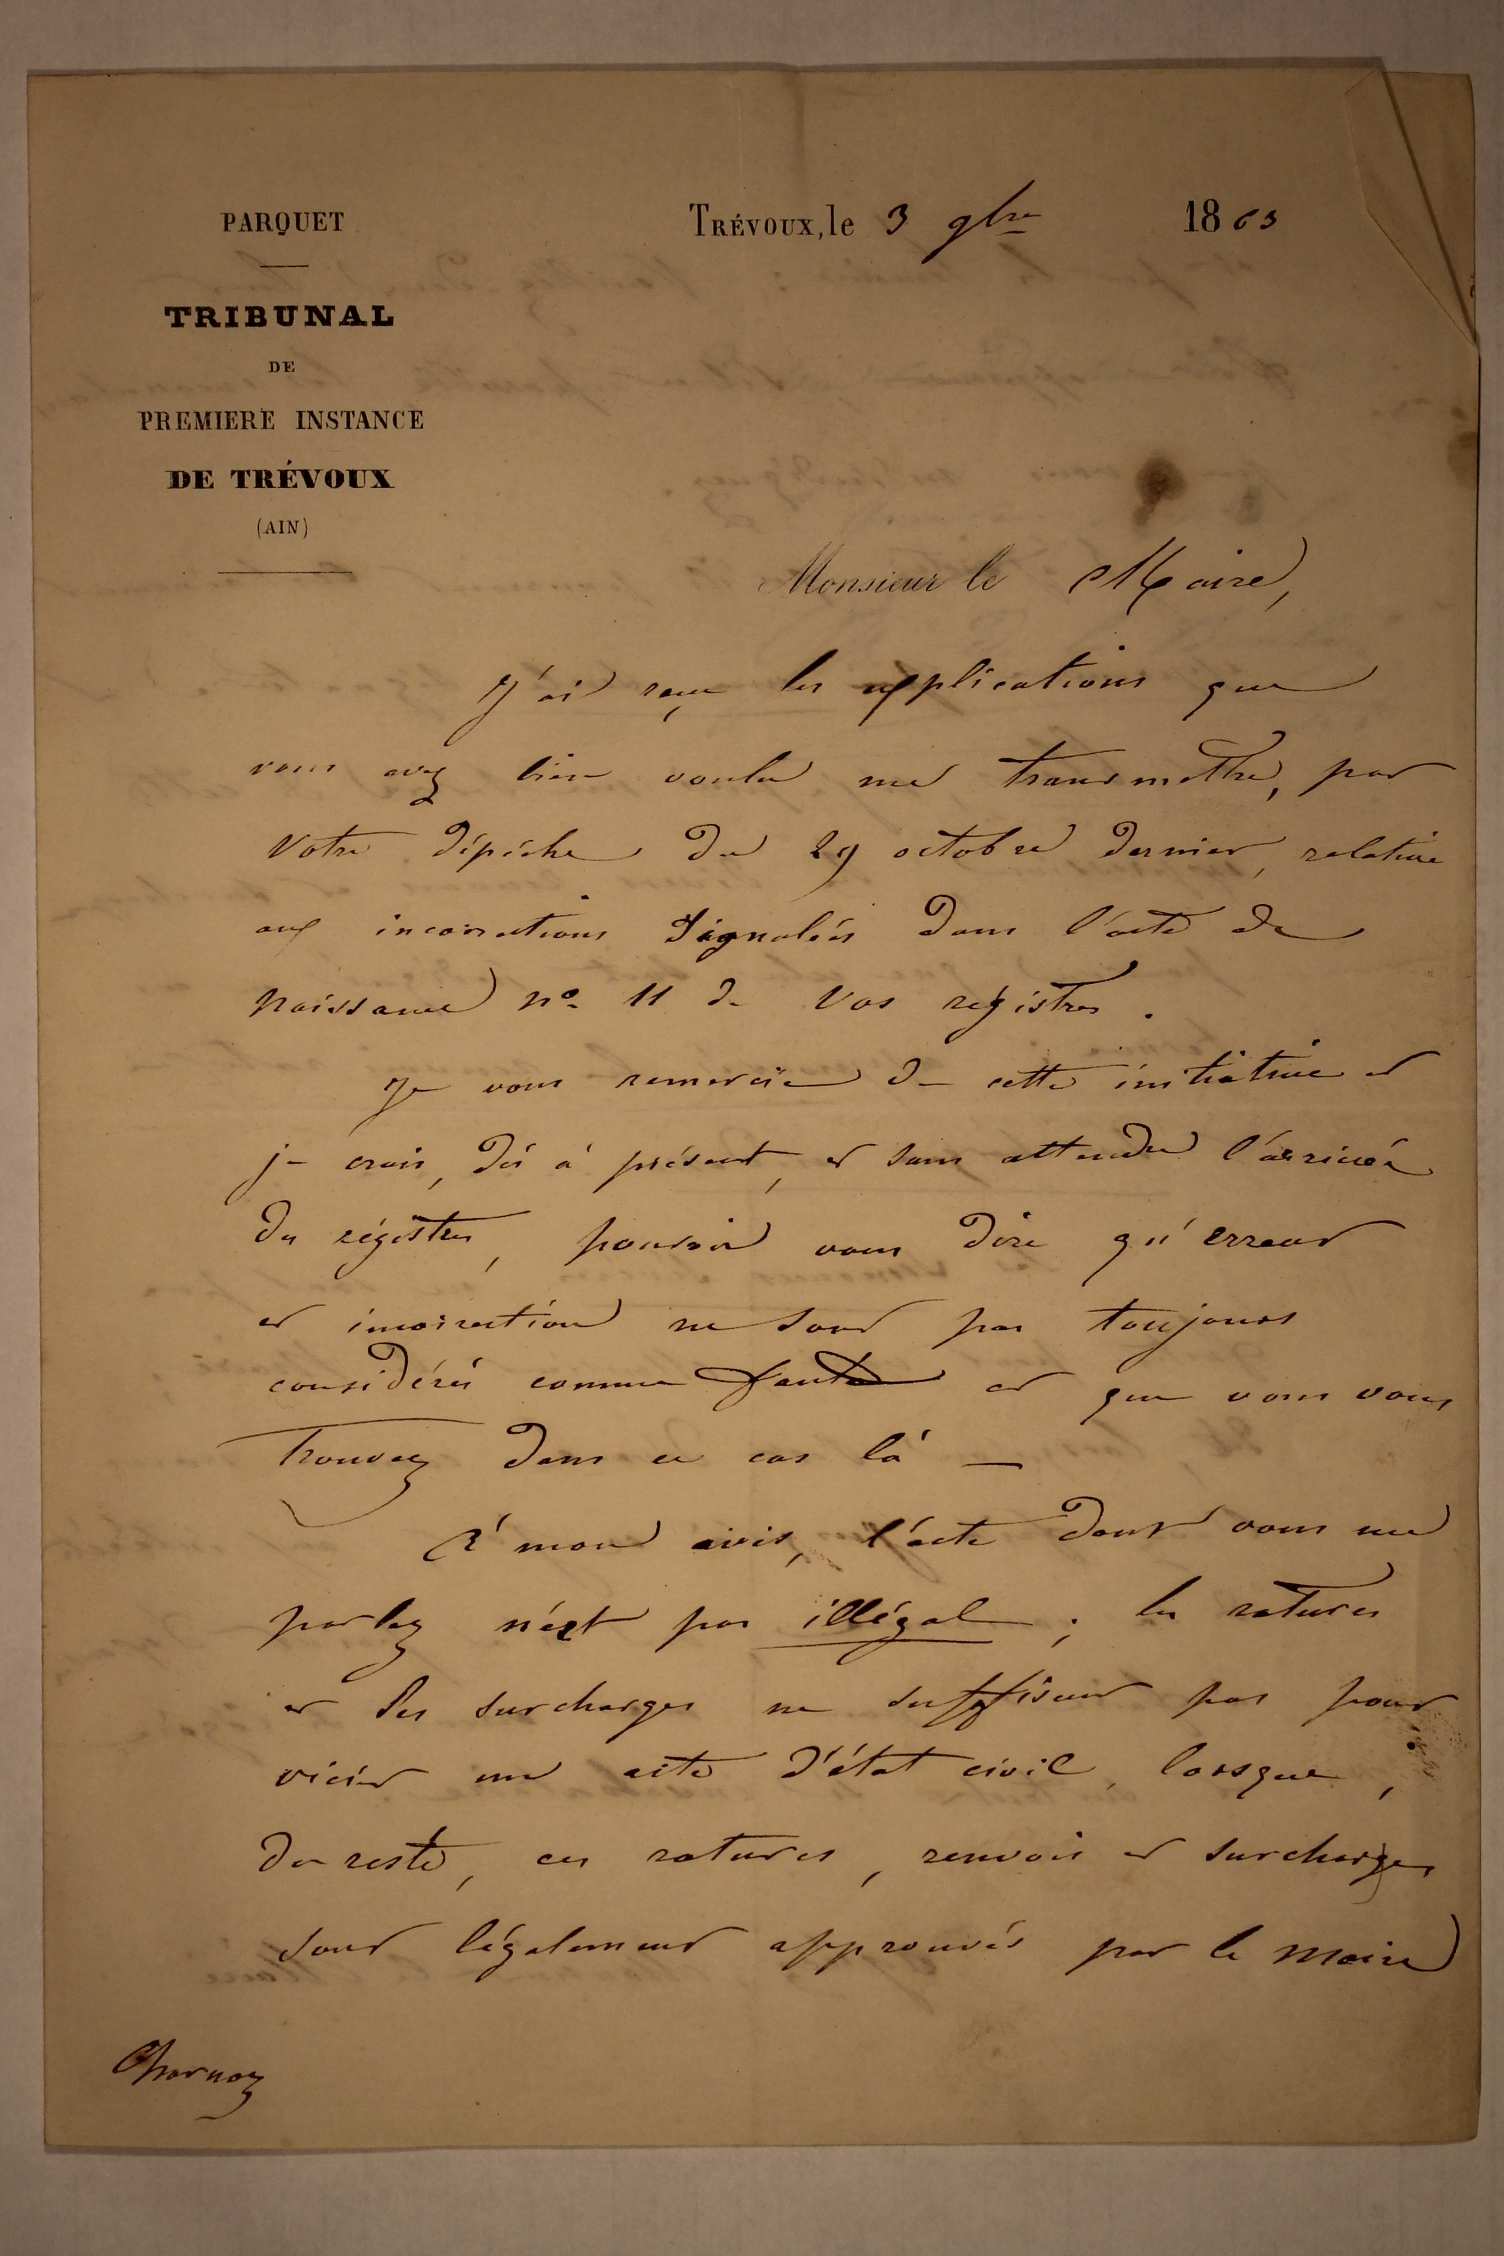 PARQUET
TRÉVOUX, le 3 9bre 1863
TRIBUNAL
DE
PREMIERE INSTANCE
DE TRÉVOUX
(AIN)
Monsieur le Maire,
J'ai reçu les explications que
vous avez bien voulu me transmettre, par
votre dépêche du 29 octobre dernier, relative
aux incorrections signalées dans l'acte de
naissance n° 11 de vos régistres.
Je vous remercie de cette initiative et
je crois, dès à présent, et sans attendre l'arrivée
des régistres, pouvoir vous dire qu'erreur
et incorrection ne sont pas toujours
considérés comme faute et que vous vous
trouvez dans ce cas là —
A mon avis, l'acte dont vous me
parlez n'est pas illégal ; les ratures
et les surcharges ne suffisent pas pour
vicier un acte d'état civil, lorsque,
du reste, ces ratures, renvois et surcharges
sont légalement approuvés par le maire
Charnoz